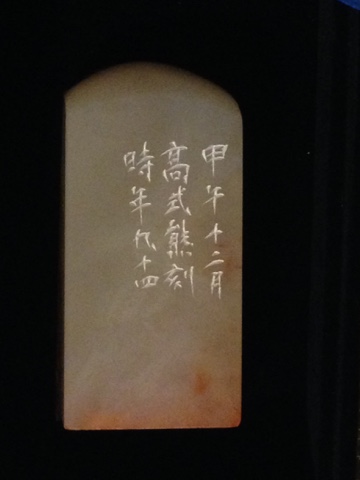 甲午十二月
高式熊刻
時年九十四